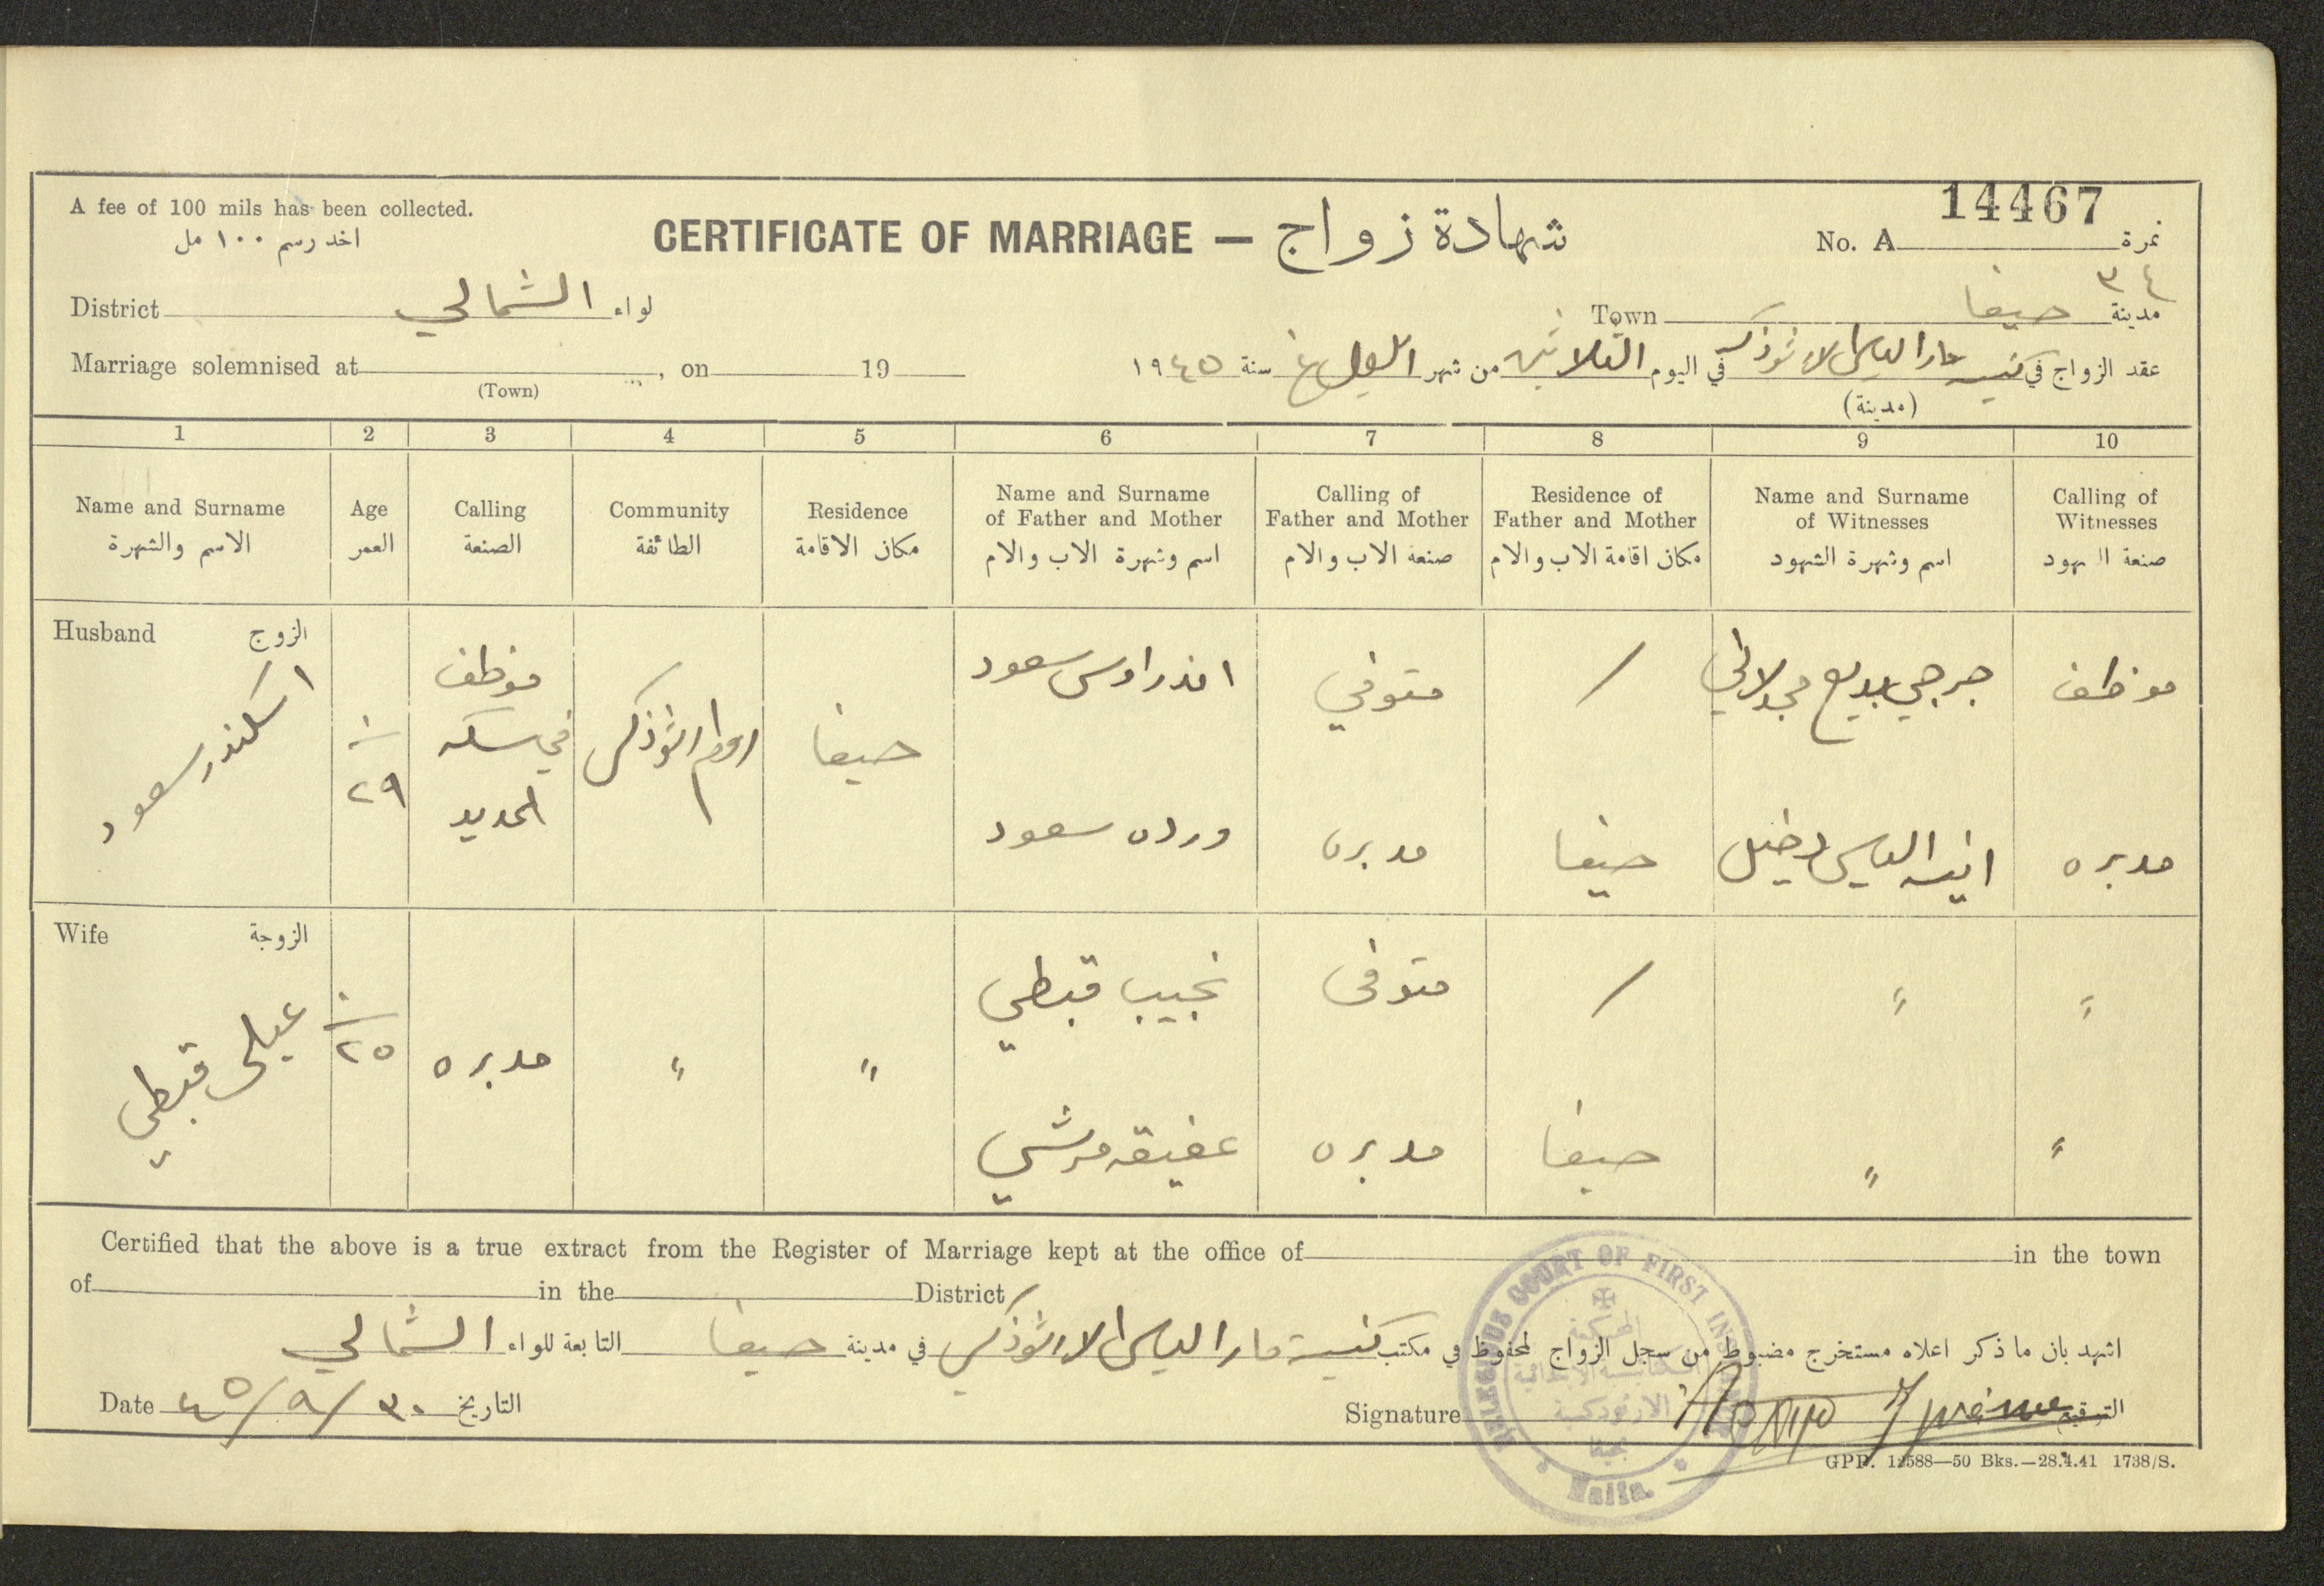 14467
A fee of 100 mils has been collected.
اخد رسم ١٠٠ مل
CERTIFICATE OF MARRIAGE — شهادة زواج
No. A نمرة
٣٤
District الشمالي لواء
Town حيفا مدينة
Marriage solemnised at , on 19
(Town)
عقد الزواج في كنيسة مار الياس الارثوذكس في اليوم الثلاثين من شهر ايلول سنة ١٩٤٥
(مدينة)
1 2 3 4 5 6 7 8 9 10
Name and Surname الاسم والشهرة
Age العمر
Calling الصنعة
Community الطائفة
Residence مكان الاقامة
Name and Surname of Father and Mother اسم وشهرة الاب والام
Calling of Father and Mother صنعة الاب والام
Residence of Father and Mother مكان اقامة الاب والام
Name and Surname of Witnesses اسم وشهرة الشهود
Calling of Witnesses صنعة الشهود
Husband الزوج
اسكندر سعود
٢٩
موظف في سكه الحديد
روم ارثوذكس
حيفا
اندراوس سعود
متوفي
/
جرجي بديع مجدلاني
موظف
ورده سعود
مدبره
حيفا
انيسه الياس دخيل
مدبره
Wife الزوجة
قبطي
٢٥
مدبره
"
"
نجيب قبطي
متوفى
/
"
"
عفيفه مرشي
مدبره
حيفا
"
"
Certified that the above is a true extract from the Register of Marriage kept at the office of in the town
of in the District
اشهد بان ما ذكر اعلاه مستخرج مضبوط من سجل الزواج المحفوظ في مكتب كنيسة مار الياس الارثوذكس في مدينة حيفا التابعة للواء الشمالي
Date ٣٠/٩/٤٥ التاريخ
Signature التوقيع
RELIGIOUS COURT OF FIRST INSTANCE
المحكمة
الكنائسية الابتدائية
الارثوذكسية
بحيفا
Haifa.
GPP. 12588—50 Bks.—28.4.41 1738/S.